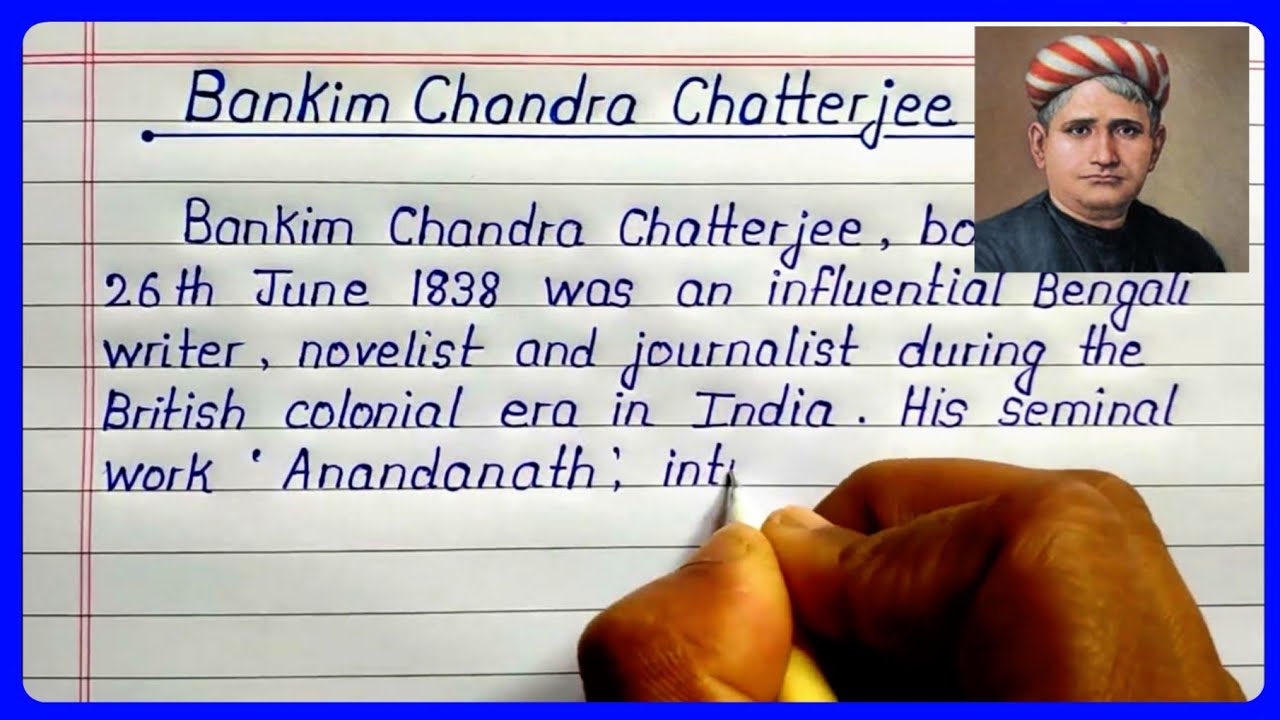 Bankim Chandra Chatterjee
Bankim Chandra Chatterjee, bo
26th June 1838 was an influential Bengali
writer, novelist and journalist during the
British colonial era in India. His seminal
work 'Anandanath', int